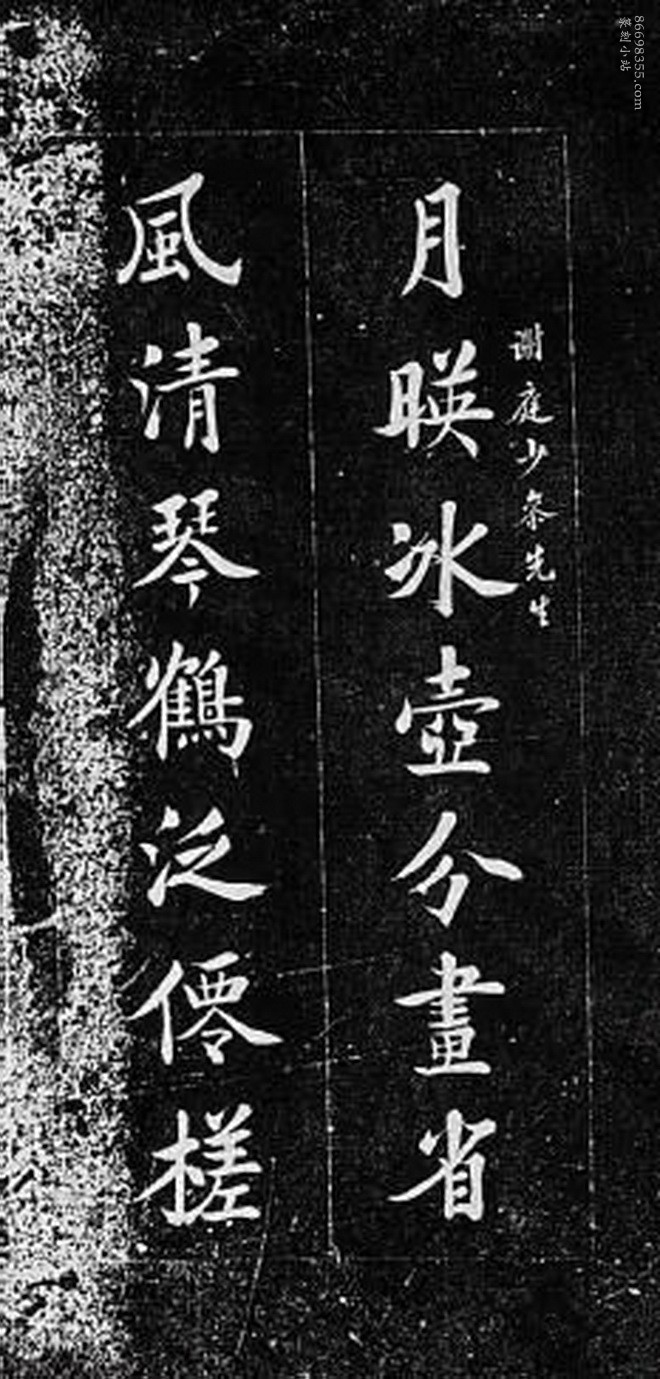 謝庭少參先生
月暎冰壺分畫省
風清琴鶴泛僊槎
86698355.com
篆刻小站